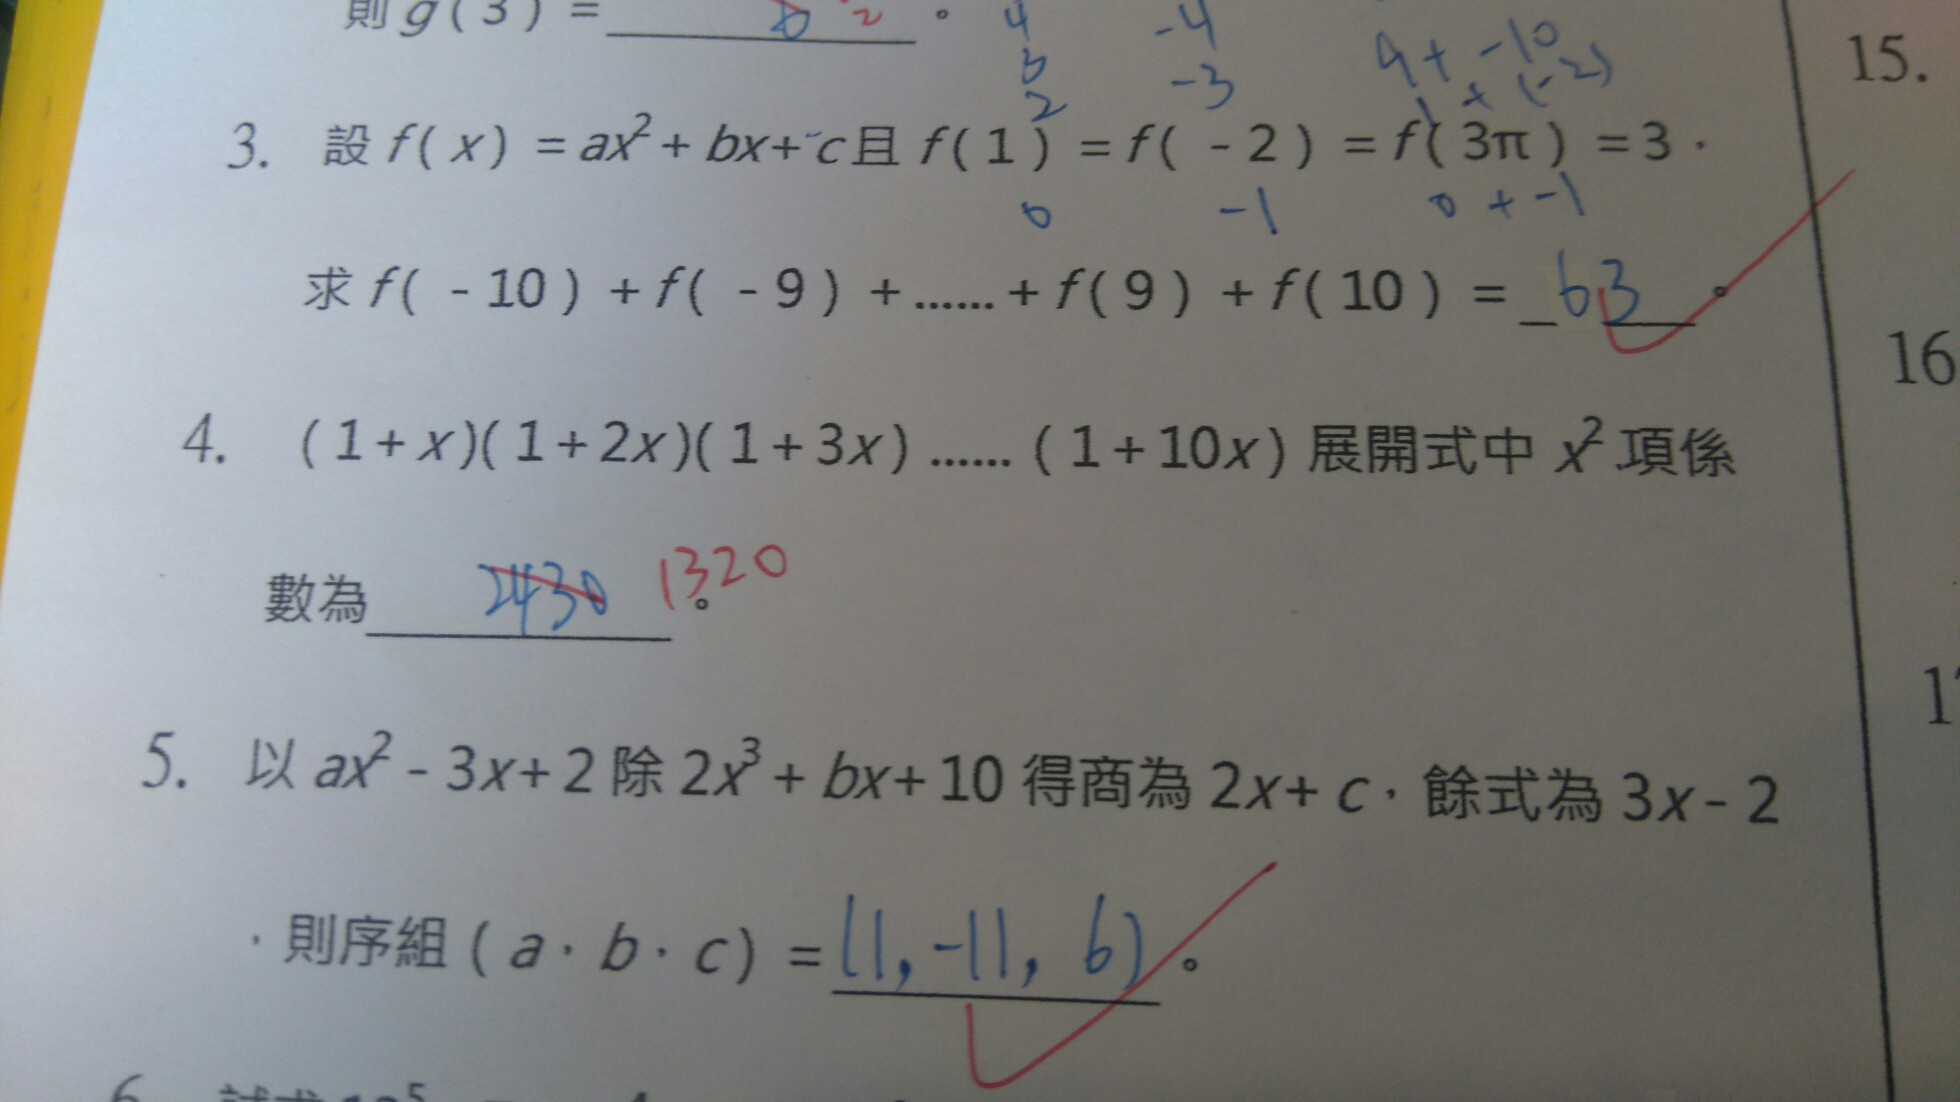 則 g ( 3 ) = 6 2 。
4 -4 9 + -10
3 -3 + (-2)
2
15.
3. 設 f( x ) = ax² + bx + c 且 f( 1 ) = f( - 2 ) = f( 3π ) = 3 ,
0 -1 0 + -1
求 f( - 10 ) + f( - 9 ) + ...... + f( 9 ) + f( 10 ) = 63 。
16
4. ( 1 + x )( 1 + 2x )( 1 + 3x ) ...... ( 1 + 10x ) 展開式中 x² 項係
數為 2430 1320 。
5. 以 ax² - 3x + 2 除 2x³ + bx + 10 得商為 2x + c , 餘式為 3x - 2
, 則序組 ( a , b , c ) = (1, -11, 6) 。